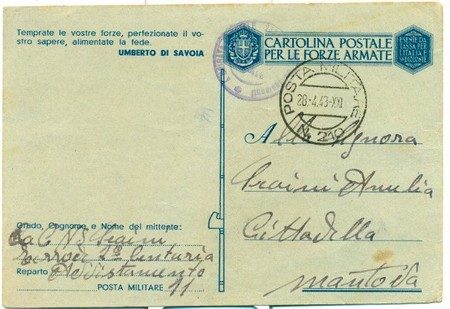 Temprate le vostre forze, perfezionate il vo-
stro sapere, alimentate la fede.
UMBERTO DI SAVOIA
CARTOLINA POSTALE
PER LE FORZE ARMATE
ESENTE DA
TASSA PER
L'ITALIA E
POSTA MILITARE
28-4.43-XXI
N. 210
Alla Signora
Amelia
Cittadella
Mantova
Grado, Cognome, e Nome del mittente:
2ª Centuria
Reparto
POSTA MILITARE 11